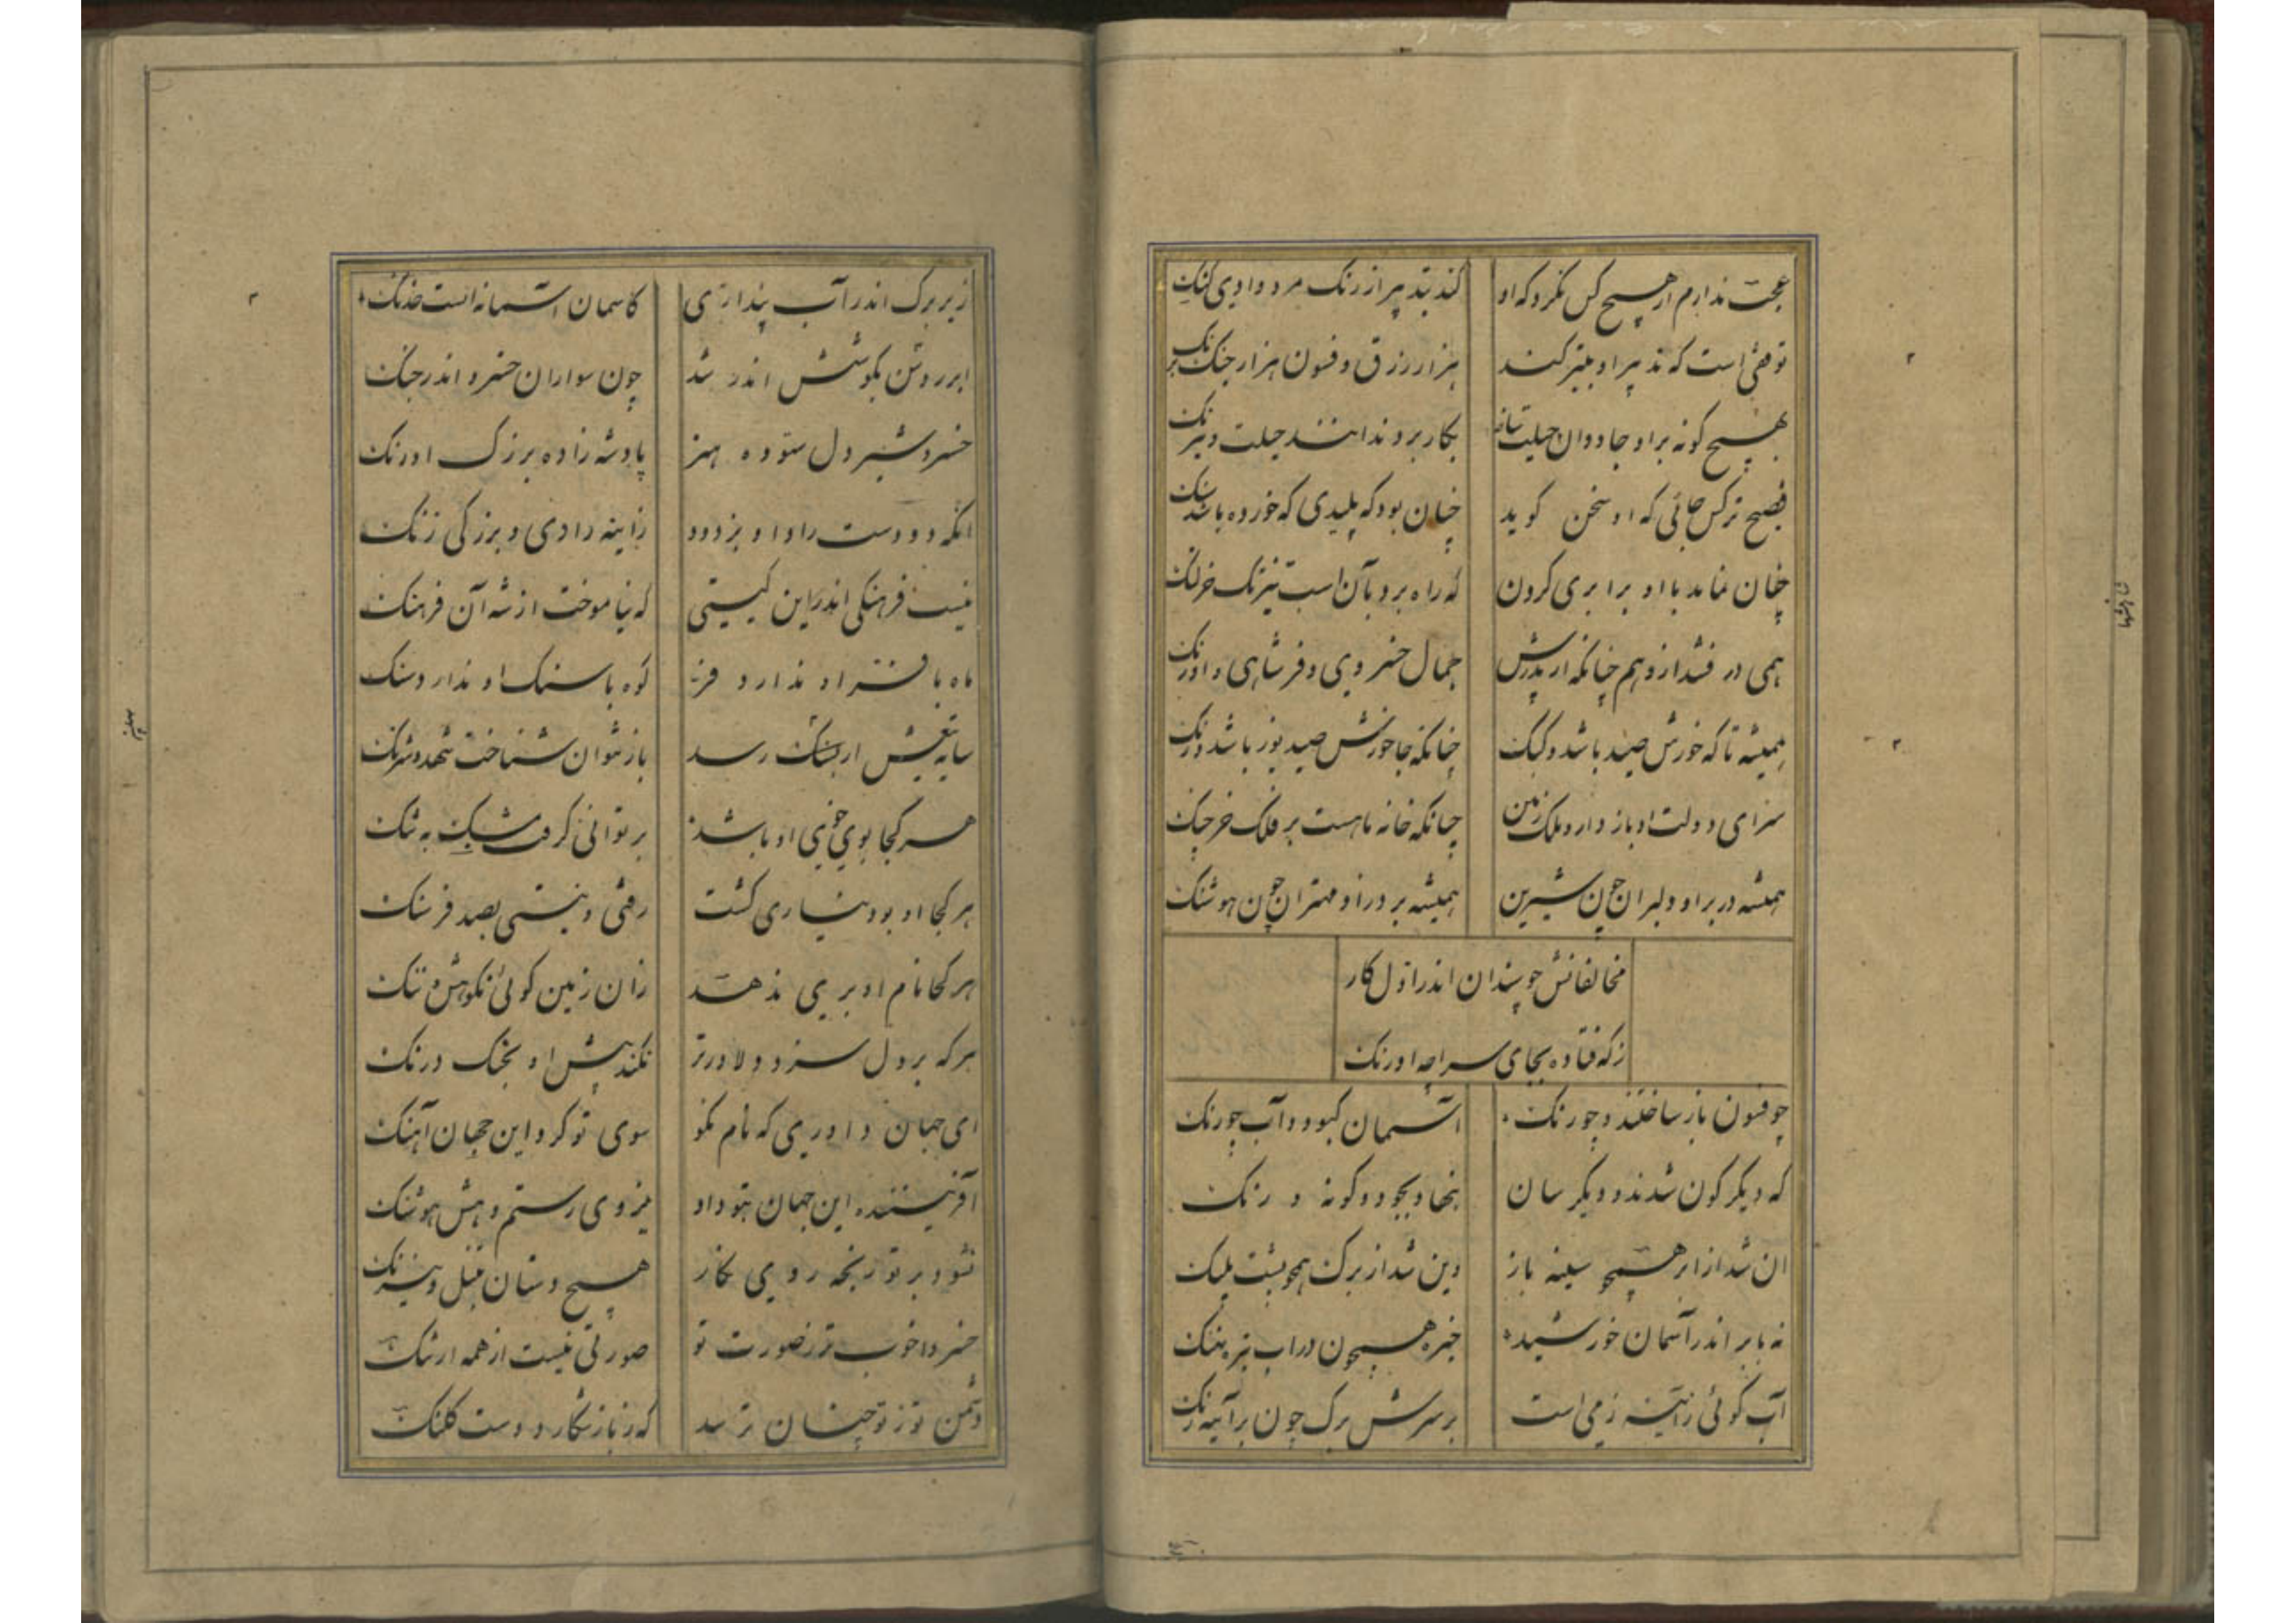 عجب ندارم ار هیچ کس نکرد که او
کند بتد پیر از رنک مرد وادی کنک
توهمی است که تدبیر او بتر کند
هزار زرق و فسون هزار جنک
بهیچ کونه بر او جاودان حیلت ساز
بکار برد ندانند حیلت و نیرنک
فصیح ترکس جائی که او سخن کوید
چنان بود که پلیدی که خورده باشد بنک
چنان نماید با او برابری کردن
که راه برد بآن اسب تیزتک خر لنک
همی درفشد ازو هم چنانکه از پدرش
جمال خسروی و فر شاهی و اورنک
همیشه تا که خورش صید باشد و کبک
چنانکه جا خورش صید یوز باشد ورنک
سزای دولت او باز دارد ملک زمین
چنانکه خانه ماهست بر فلک خرچنک
همیشه در بر او دلبران چون شیرین
همیشه بر در او مهتران چون هوشنک
مخالفانش چو پیندان اندر اول کار
زکه فتاده بجای سراچه اورنک
چو فسون باز ساختند و چو رنک
آسمان کبود و آب چو رنک
که دیکر کون شدند و دیکر سان
بنهاد و بجود و کونه و رنک
ان شد از ابر همچو سینه باز
وین شد از برک همچو پشت پلنک
نه بابر اندر آسمان خورشید
خیره همچون در اب تیره نهنک
آب کوئی زآینه زمی است
بر سرش برک چون بر آینه زنک
زیر برک اندر آب پنداری
کاسمان آسمانه است خدنک
ابر روشن بکوشش اندر شد
چون سواران خسرو اندر جنک
خسرو شیر دل ستوده هنر
پادشه زاده بزرک اورنک
انکه دو دست راد او بزدود
زاینه رادی و بزرکی زنک
نیست فرهنکی اندر این کیتی
که نیاموخت از شه آن فرهنک
ماه با فر او ندارد فر
کوه با سنک او ندارد سنک
سایه تیغش ار بسنک رسد
باز نتوان شناخت شهد و شرنک
هر کجا بوی خوی او باشد
بر توانی کرفت مشک به تنک
هر کجا او بود نیاری کشت
زفتی و نیستی بصد فرسنک
هر کجا نام او بری ندهد
زان زمین کوئی نکوهش و ننک
هر که بر دل سزد و دلاورتر
نکند پیش او بجنک درنک
ای جهان داوری که نام نکو
سوی تو کرد این جهان آهنک
آفریننده این جهان بتو داد
نیروی رستم و هش هوشنک
نشود بر تو رنجه روی نکار
هیچ دستان تنبل و نیرنک
خسروا خوب تر ز صورت تو
صورتی نیست از همه ارتنک
دشمن تو ز تو چنان ترسد
که ز باز شکار دوست کلنک